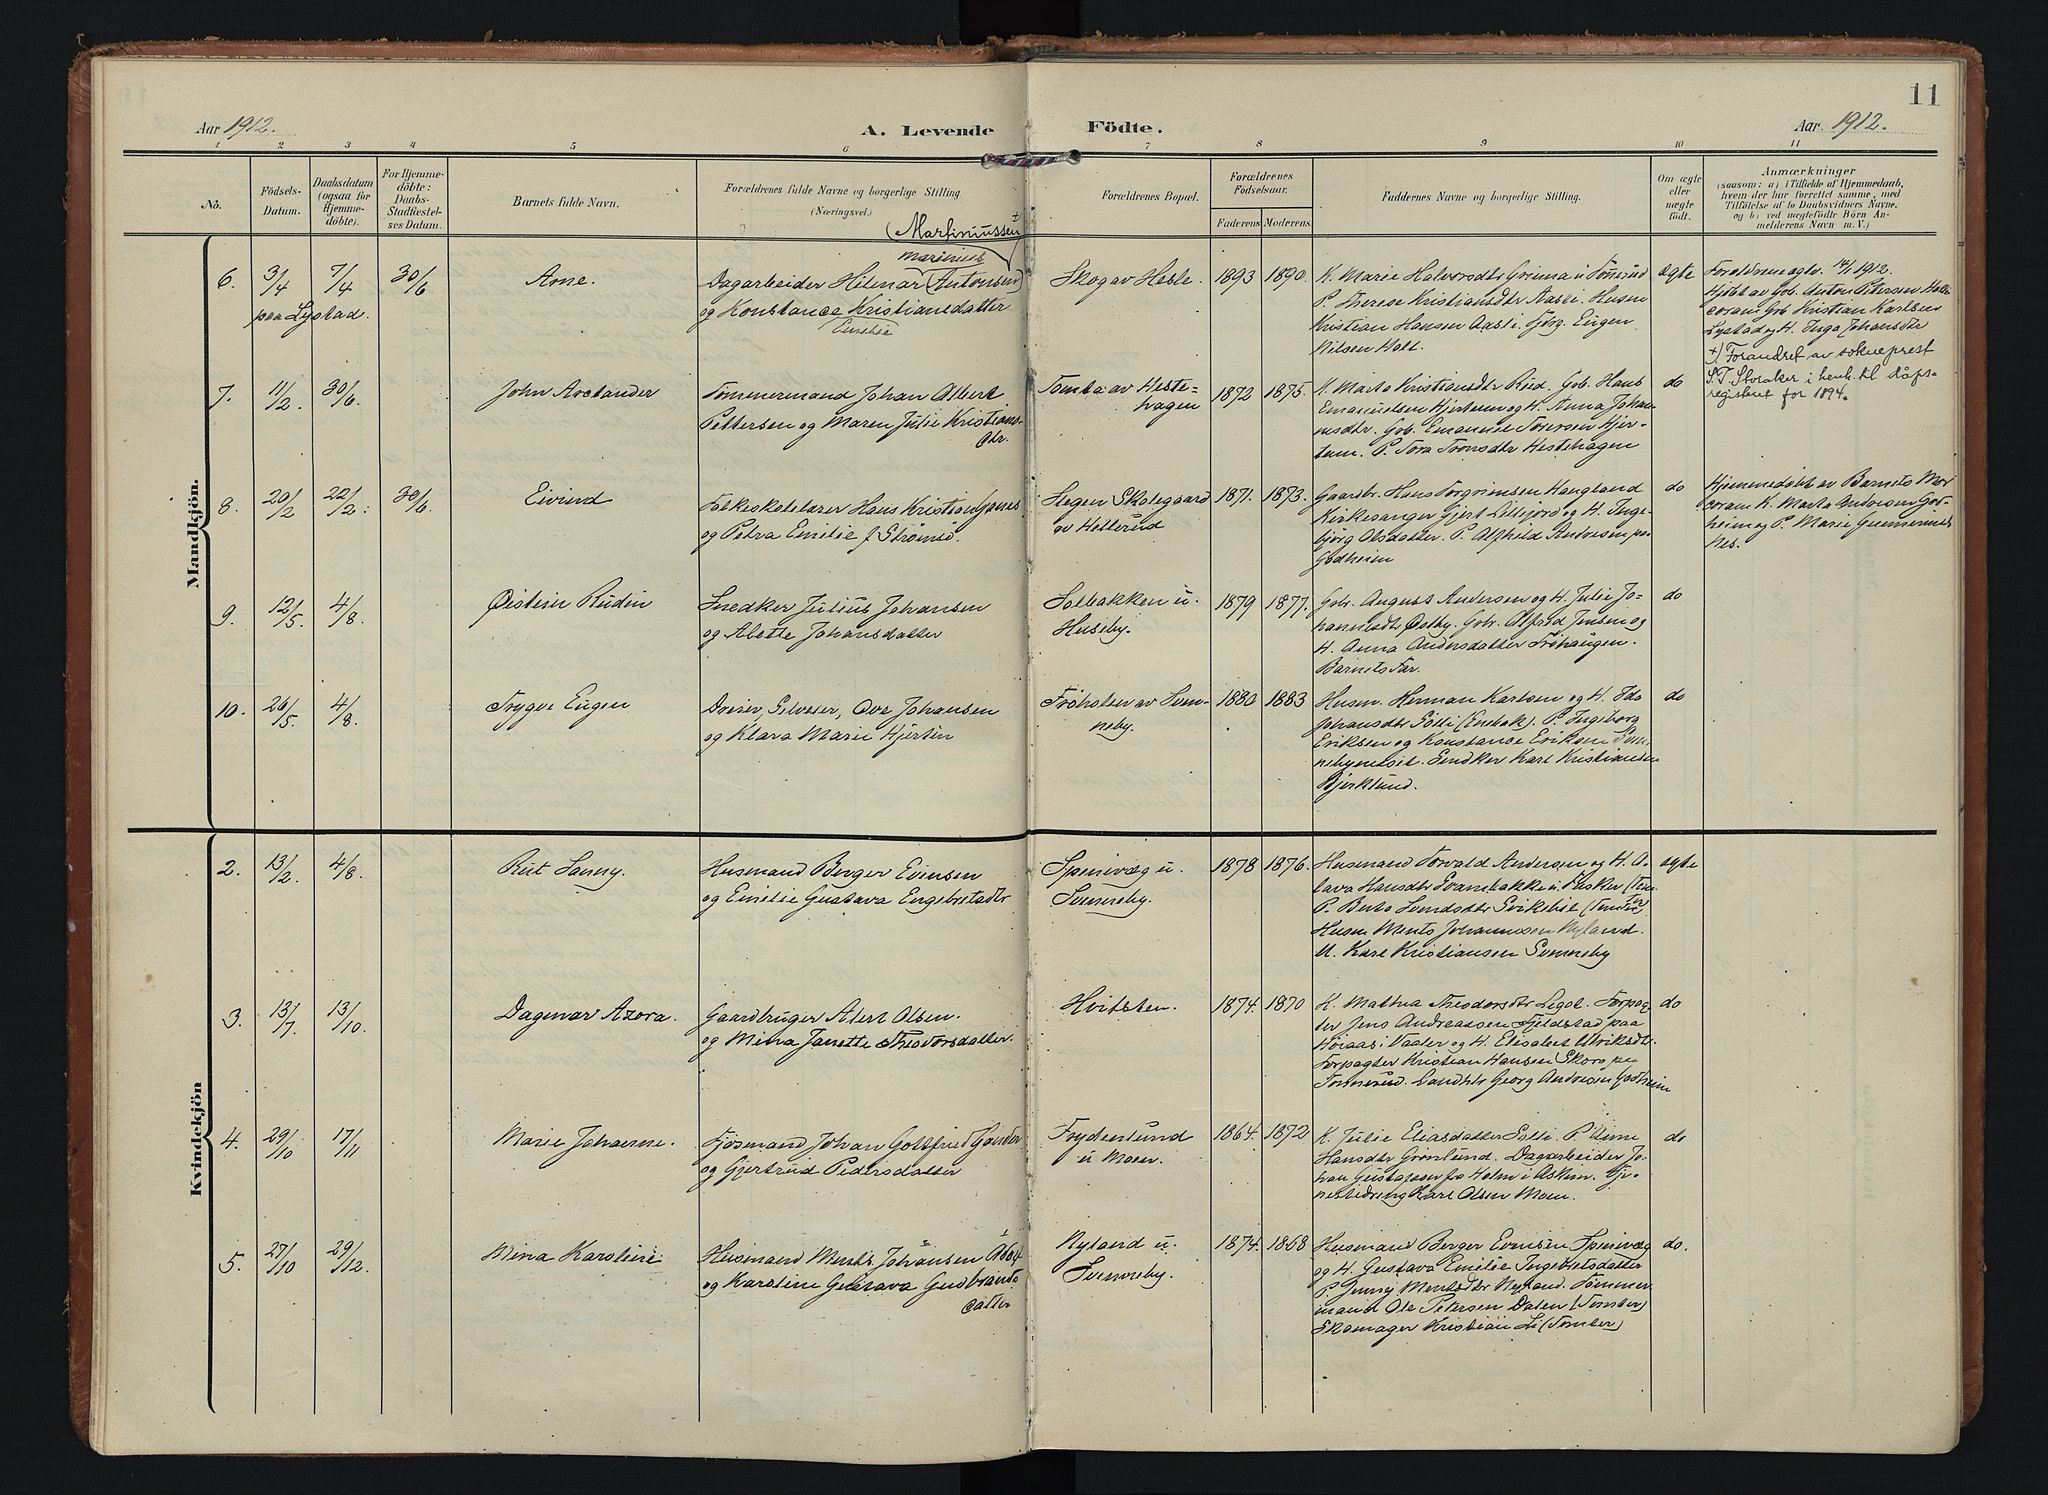 11
Aar 1912.
A. Levende Födte.
Aar 1912.
1 2 3 4 5 6 7 8 9 10 11
No.
Födsels-
Datum.
Daabsdatum
(ogsaa for
Hjemme-
döbte).
For Hjemme-
döbte:
Daabs-
Stadfæstel-
ses Datum.
Barnets fulde Navn.
Forældrenes fulde Navne og borgerlige Stilling.
(Næringsvei.)
Forældrenes Bopæl.
Forældrenes
Födselsaar.
Faderens Moderens
Faddernes Navne og borgerlige Stilling.
Om ægte
eller
uægte
födt.
Anmærkninger
(saasom: a) i Tilfælde af Hjemmedaab,
hvem der har forrettet samme, med
Tilföielse af to Daabsvidners Navne,
og b) ved uægtefödte Börn An-
melderens Navn m. V.)
Mandkjön.
(Martinussen +
Marinius
6. 3/4 7/4 30/6 Arne.
paa Lystad.
Dagarbeider Hilmar (Antonsen)
og Konstance Kristiansdatter
Emilie
Skog av Hesle. 1893 1890.
K. Marie Halvorsdtr Grima u. Tönerud
P. Therese Kristiansdtr Aasli. Husm
Kristian Hansen Aasli. Fjörg. Eugen
Nilsen Holt.
ægte
Foreldrene egtv. 14/1 1912.
Hjdbt av Gbr. Anton Petersen
coram Gbr Kristian Karlsen
Lystad og H. Inga Johansdtr
+) Forandret av sokneprest
S.T. Storaker i henh. til dåps-
registret for 1894.
7. 11/2 30/6. John Arelander
Tömmermand Johan Albert
Pettersen og Maren Julie Kristians-
dtr.
Tomta av Heste-
hagen
1872 1875.
K. Marta Kristiansdtr Rud. Gbr. Hans
Emanuelsen Hjertum og H. Anna Johan-
nesdtr. Gbr. Emanuel Torersen Hjer-
tum. P. Tora Tronsdtr Hestehagen
do
8. 20/2 22/2. 30/6 Eivind
Folkeskolelærer Hans Kristian
og Petra Emilie f. Strömsö.
Stegen Skolegaard
av Hellerud
1871. 1873.
Gaardbr. Hans Torgrimsen Haugland
Kirkesanger Gjert Lilljord og H. Inge-
björg Olsdatter. P. Alfhild Andresen pa
Godheim
do
Hjemmedöbt av Barnets Mor
coram K. Marta Andresen God-
heim og P. Marie
Nes.
9. 12/5. 4/8. Øistein Rudin
Snedker Julius Johansen
og Alette Johansdatter
Solbakken u.
Huseby.
1879 1877.
Gbr. August Andersen og H. Julie Jo-
hannesdtr Østby. Gbr. Alfred Jensen og
H. Anna Andersdatter Fröhaugen.
Barnets Far.
do
10. 26/5. 4/8. Trygve Eugen
Dreier, Selveier, Ove Johansen
og Klara Marie Hjertin
Fröholen av Svenn-
neby.
1880 1883
Husm. Herman Karlsen og H. Ida
Johansdtr Solli (Enebak). P. Ingeborg
Eriksen og Konstance Eriksen Svenn-
nebymoset. Snedker Karl Kristiansen
Bjerklund.
do
Kvindekjön
2. 13/2. 4/8. Rut Sanny.
Husmand Berger Evensen
og Emelie Gustava Engebretsdtr
Spenivæg u.
Svenneby.
1878 1876.
Husmand Torvald Andersen og H. O-
lava Hansdtr Svarebakke u. Fusker (Tom-
P. Berte Svendsdtr Svikebøl (Tomter)
Husm Ments Johannesen Nyland.
U. Karl Kristiansen Svenneby
ægte
3. 13/7 13/10. Dagmar Azora.
Gaardbruger Alert Olsen.
og Mina Janette Theodorsdatter.
Hvitsten. 1874. 1870
K. Mathea Theodorsdtr Ligol. Forpag-
ter Jens Andreassen Fjeldstad paa
Höiaas i Vaaler og H. Elisabet Ulriksdtr.
Forpagter Kristian Hansen Skoro pa
Tomerud. Landhdr Georg Andresen Godheim
do
4. 29/10 17/11 Marie Johanne.
Fjösmand Johan Gottfried Sander
og Gjertrud Pedersdatter
Frydenlund
u Moen.
1864. 1872
K. Julie Eliasdatter Solli. P. Anne
Hansdtr Grönlund. Dagarbeider Jo-
han Gustavsen fra Holm i Askim. Tje-
nestedreng Karl Olsen Moen.
do
5. 27/10 29/12. Mina Karoline
Husmand Ments Johansen Adolf
og Karoline Gustava Gudbrands-
datter
Nyland u.
Svenneby.
1874. 1868
Husmand Berger Evensen Spenivæg
og H. Gustava Emilie Ingebretsdatter
P. Jenny Mentsdtr Nyland. Tömmer-
mand Ole Petersen Dalen (Tomter)
Skomager Kristian Li (Tomter)
do.